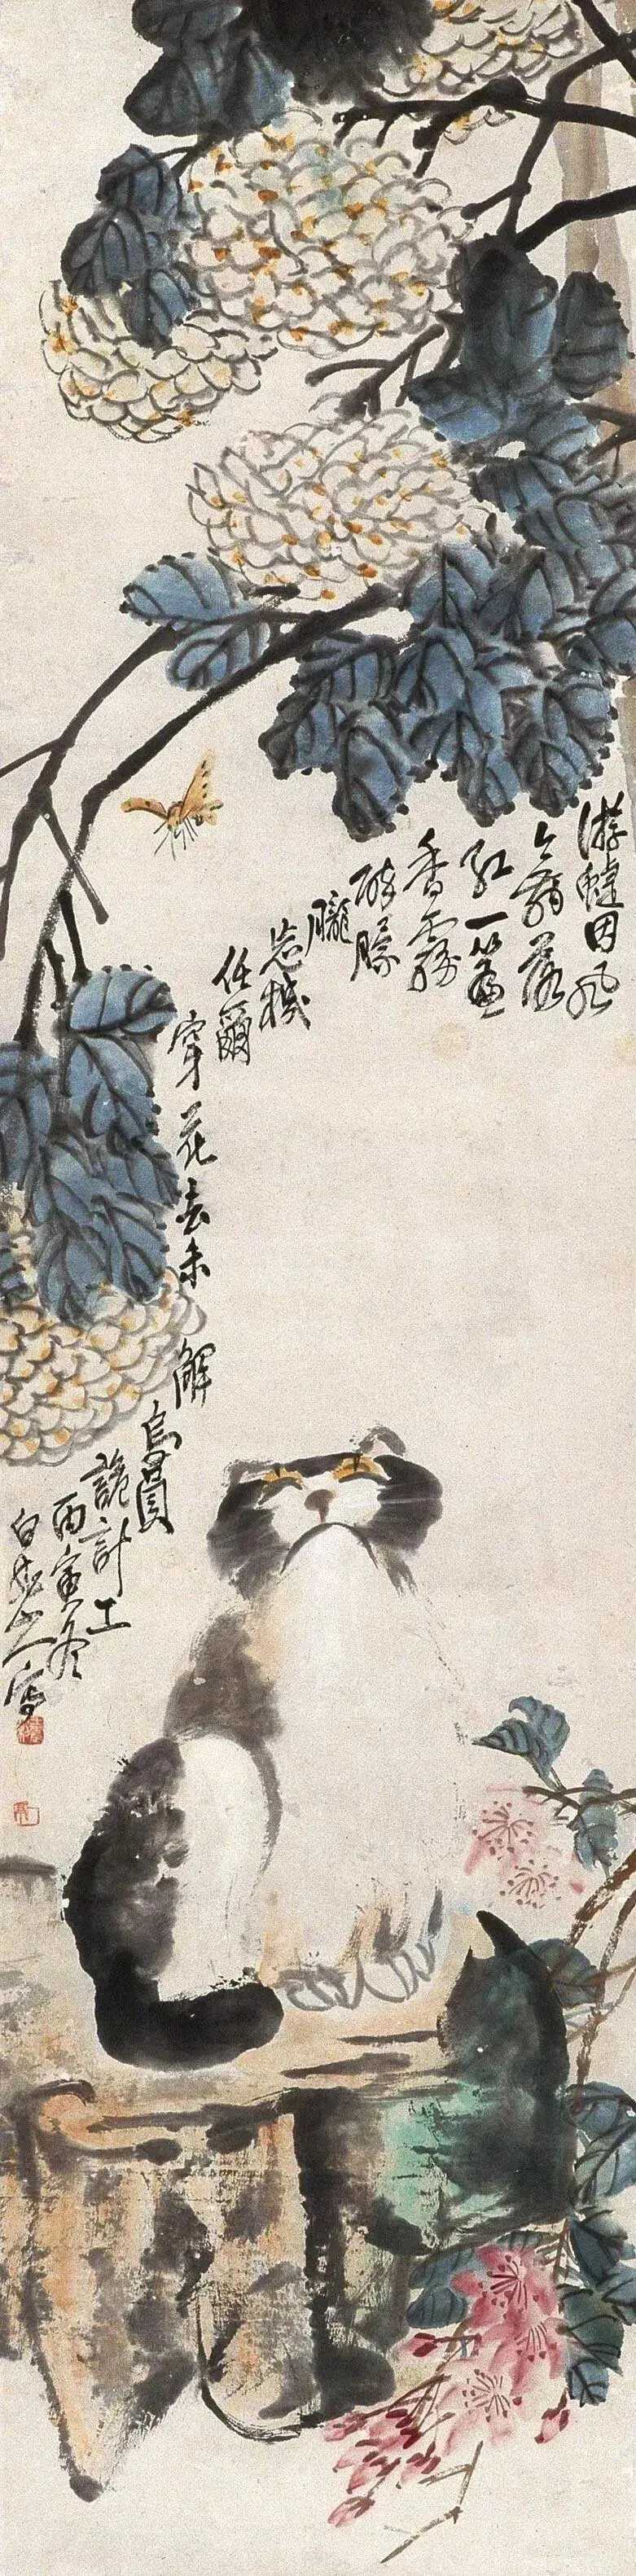 游蜨因風
落
紅一簾
香霧
酔朦
朧
忘機
任爾
穿花去未解
烏圓
詭計工
丙寅冬
白龍山人寫